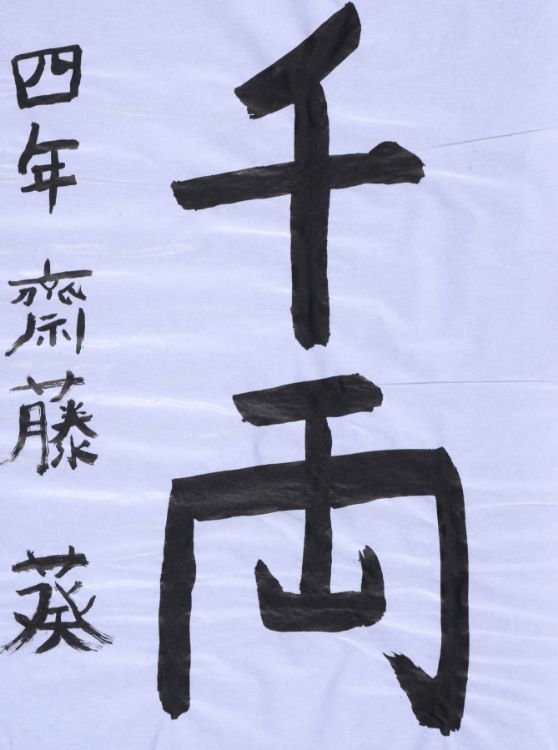 千両
四年 齋藤 葵